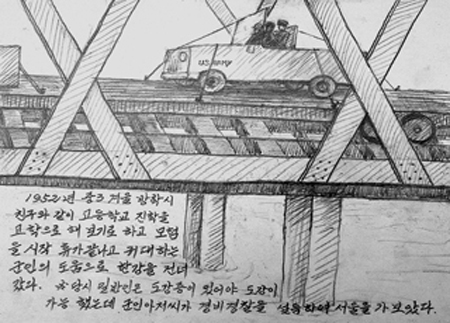 U.S. ARMY
1952년 중3 겨울 방학시
친구와 같이 고등학교 진학을
고학으로 해 보기로 하고 모험
을 시작 휴가끝나고 귀대하는
군인의 도움으로 한강을 건너
갔다. ※당시 민간인은 도강증이 있어야 도강이
가능 했는데 군인아저씨가 경비경찰을 설득하여 서울을 가 보았다.